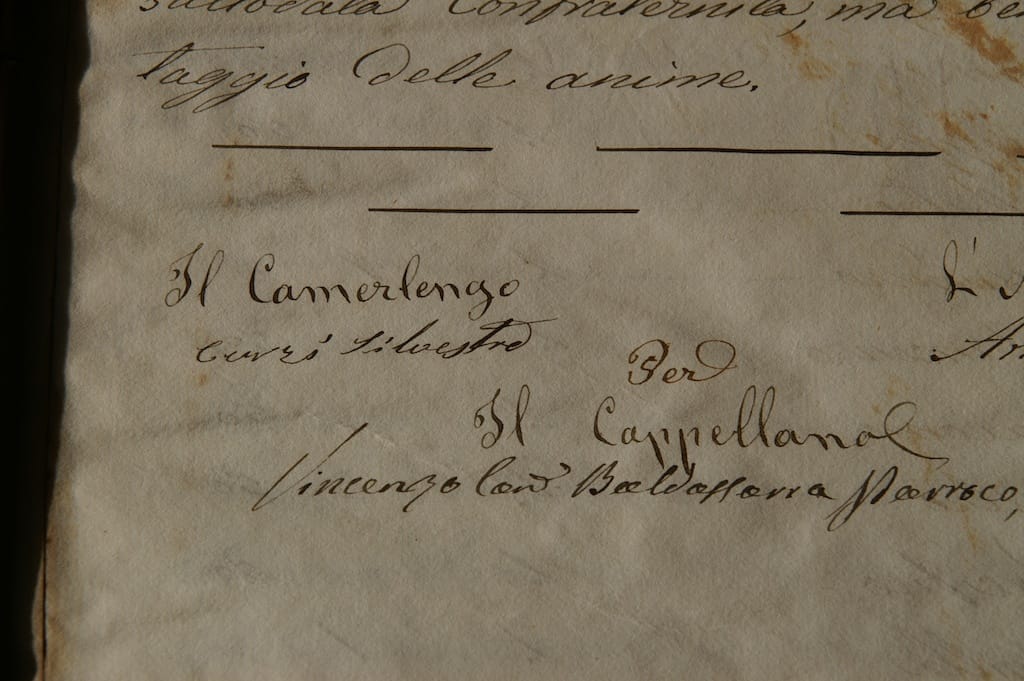 Confraternita, ma
taggio delle anime.
Il Camerlengo
Curzi Silvestro
Per
Il Cappellano
Vincenzo Can° Baldassarra Parroco,
L'